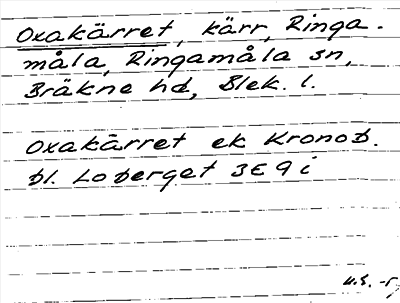 Oxakärret, kärr, Ringa-
måla, Ringamåla sn,
Bräkne hd, Blek. l.
Oxakärret ek Kronob.
bl. Loberget 3E 9 i